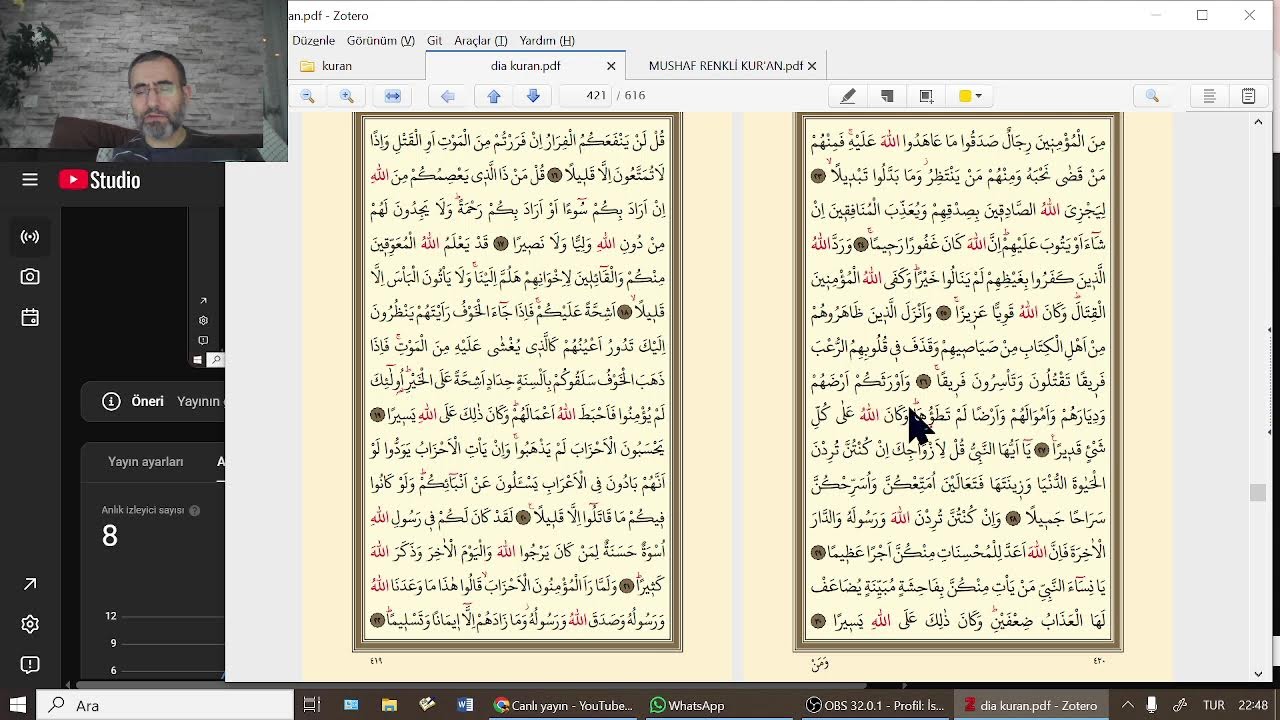 an.pdf - Zotero
Düzenle Görünüm (V) Git Araçlar (T) Yardım (H)
kuran
dia kuran.pdf
MUSHAF RENKLİ KUR'AN.pdf
421 / 616
Studio
Öneri Yayının
Yayın ayarları A
Anlık izleyici sayısı
8
12
9
6
قُلْ لَنْ يَنْفَعَكُمُ الْفِرَارُ اِنْ فَرَرْتُمْ مِنَ الْمَوْتِ اَوِ الْقَتْلِ وَاِذًا
لَا تُمَتَّعُونَ اِلَّا قَل۪يلًا ﴿١٦﴾ قُلْ مَنْ ذَا الَّذ۪ي يَعْصِمُكُمْ مِنَ اللّٰهِ
اِنْ اَرَادَ بِكُمْ سُٓوءًا اَوْ اَرَادَ بِكُمْ رَحْمَةًۜ وَلَا يَجِدُونَ لَهُمْ
مِنْ دُونِ اللّٰهِ وَلِيًّا وَلَا نَص۪يرًا ﴿١٧﴾ قَدْ يَعْلَمُ اللّٰهُ الْمُعَوِّق۪ينَ
مِنْكُمْ وَالْقَٓائِل۪ينَ لِاِخْوَانِهِمْ هَلُمَّ اِلَيْنَاۚ وَلَا يَأْتُونَ الْبَأْسَ اِلَّا
قَل۪يلًاۙ ﴿١٨﴾ اَشِحَّةً عَلَيْكُمْۚ فَاِذَا جَٓاءَ الْخَوْفُ رَاَيْتَهُمْ يَنْظُرُونَ
اِلَيْكَ تَدُورُ اَعْيُنُهُمْ كَالَّذ۪ي يُغْشٰى عَلَيْهِ مِنَ الْمَوْتِۚ فَاِذَا
ذَهَبَ الْخَوْفُ سَلَقُوكُمْ بِاَلْسِنَةٍ حِدَادٍ اَشِحَّةً عَلَى الْخَيْرِۜ اُو۬لٰٓئِكَ
لَمْ يُؤْمِنُوا فَاَحْبَطَ اللّٰهُ اَعْمَالَهُمْۜ وَكَانَ ذٰلِكَ عَلَى اللّٰهِ يَس۪يرًا ﴿١٩﴾
يَحْسَبُونَ الْاَحْزَابَ لَمْ يَذْهَبُواۚ وَاِنْ يَأْتِ الْاَحْزَابُ يَوَدُّوا لَوْ
اَنَّهُمْ بَادُونَ فِي الْاَعْرَابِ يَسْـَٔلُونَ عَنْ اَنْبَٓائِكُمْۜ وَلَوْ كَانُوا
ف۪يكُمْ مَا قَاتَلُٓوا اِلَّا قَل۪يلًا۟ ﴿٢٠﴾ لَقَدْ كَانَ لَكُمْ ف۪ي رَسُولِ اللّٰهِ
اُسْوَةٌ حَسَنَةٌ لِمَنْ كَانَ يَرْجُوا اللّٰهَ وَالْيَوْمَ الْاٰخِرَ وَذَكَرَ اللّٰهَ
كَث۪يرًاۜ ﴿٢١﴾ وَلَمَّا رَاَ الْمُؤْمِنُونَ الْاَحْزَابَۙ قَالُوا هٰذَا مَا وَعَدَنَا اللّٰهُ
وَرَسُولُهُ وَصَدَقَ اللّٰهُ وَرَسُولُهُۘ وَمَا زَادَهُمْ اِلَّٓا ا۪يمَانًا وَتَسْل۪يمًاۜ ﴿٢٢﴾
٤١٩
مِنَ الْمُؤْمِن۪ينَ رِجَالٌ صَدَقُوا مَا عَاهَدُوا اللّٰهَ عَلَيْهِۚ فَمِنْهُمْ
مَنْ قَضٰى نَحْبَهُ وَمِنْهُمْ مَنْ يَنْتَظِرُ وَمَا بَدَّلُوا تَبْد۪يلًاۙ ﴿٢٣﴾
لِيَجْزِيَ اللّٰهُ الصَّادِق۪ينَ بِصِدْقِهِمْ وَيُعَذِّبَ الْمُنَافِق۪ينَ اِنْ
شَٓاءَ اَوْ يَتُوبَ عَلَيْهِمْۜ اِنَّ اللّٰهَ كَانَ غَفُورًا رَح۪يمًاۚ ﴿٢٤﴾ وَرَدَّ اللّٰهُ
الَّذ۪ينَ كَفَرُوا بِغَيْظِهِمْ لَمْ يَنَالُوا خَيْرًاۜ وَكَفَى اللّٰهُ الْمُؤْمِن۪ينَ
الْقِتَالَۜ وَكَانَ اللّٰهُ قَوِيًّا عَز۪يزًاۚ ﴿٢٥﴾ وَاَنْزَلَ الَّذ۪ينَ ظَاهَرُوهُمْ
مِنْ اَهْلِ الْكِتَابِ مِنْ صَيَاص۪يهِمْ وَقَذَفَ ف۪ي قُلُوبِهِمُ الرُّعْبَ
فَر۪يقًا تَقْتُلُونَ وَتَأْسِرُونَ فَر۪يقًاۚ ﴿٢٦﴾ وَاَوْرَثَكُمْ اَرْضَهُمْ
وَدِيَارَهُمْ وَاَمْوَالَهُمْ وَاَرْضًا لَمْ تَطَؤُ۫هَاۜ وَكَانَ اللّٰهُ عَلٰى كُلِّ
شَيْءٍ قَد۪يرًا۟ ﴿٢٧﴾ يَٓا اَيُّهَا النَّبِيُّ قُلْ لِاَزْوَاجِكَ اِنْ كُنْتُنَّ تُرِدْنَ
الْحَيٰوةَ الدُّنْيَا وَز۪ينَتَهَا فَتَعَالَيْنَ اُمَتِّعْكُنَّ وَاُسَرِّحْكُنَّ
سَرَاحًا جَم۪يلًا ﴿٢٨﴾ وَاِنْ كُنْتُنَّ تُرِدْنَ اللّٰهَ وَرَسُولَهُ وَالدَّارَ
الْاٰخِرَةَ فَاِنَّ اللّٰهَ اَعَدَّ لِلْمُحْسِنَاتِ مِنْكُنَّ اَجْرًا عَظ۪يمًا ﴿٢٩﴾
يَا نِسَٓاءَ النَّبِيِّ مَنْ يَأْتِ مِنْكُنَّ بِفَاحِشَةٍ مُبَيِّنَةٍ يُضَاعَفْ
لَهَا الْعَذَابُ ضِعْفَيْنِۜ وَكَانَ ذٰلِكَ عَلَى اللّٰهِ يَس۪يرًا ﴿٣٠﴾
وَمَنْ
٤٢٠
Ara
Canlı yayın - YouTube...
WhatsApp
OBS 32.0.1 - Profil: İs...
dia kuran.pdf - Zotero
TUR
22:48